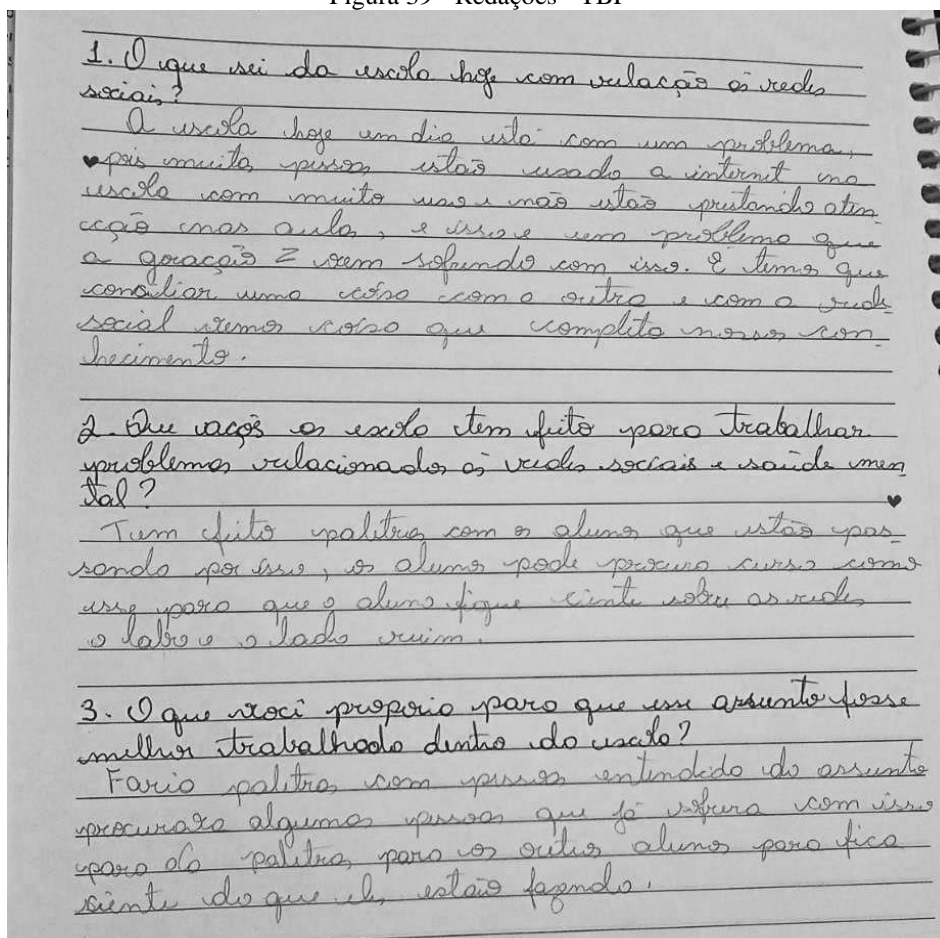 Figura 39 - Redações - TBP
1. O que sei da escola hoje com relação as redes
sociais?
A escola hoje em dia está com um problema,
pois muita pessoa estão usado a internet na
escola com muito uso e não estão prestando aten
ção nas aula, e isso e um problema que
a geração Z vem sofrendo com isso. E temos que
conciliar uma coisa com a outra e com a rede
social vemos coisa que completa nosso con-
hecimento.
2. Que ações a escola tem feito para trabalhar
problemas relacionados as redes sociais e saúde men
tal?
Tem feito palitras com os alunos que estão pas-
sando por isso, os alunos pode procura curso como
esse para que o aluno fique ciente sobre as redes
o labo e o lado ruim.
3. O que você proporia para que esse assunto fosse
melhor trabalhado dentro da escola?
Faria palitras com pessoas entendido do assunto
procuraro algumas pessoas que já sofrera com isso
para da palitra para os outros alunos para fica
ciente do que eles estão fazendo.